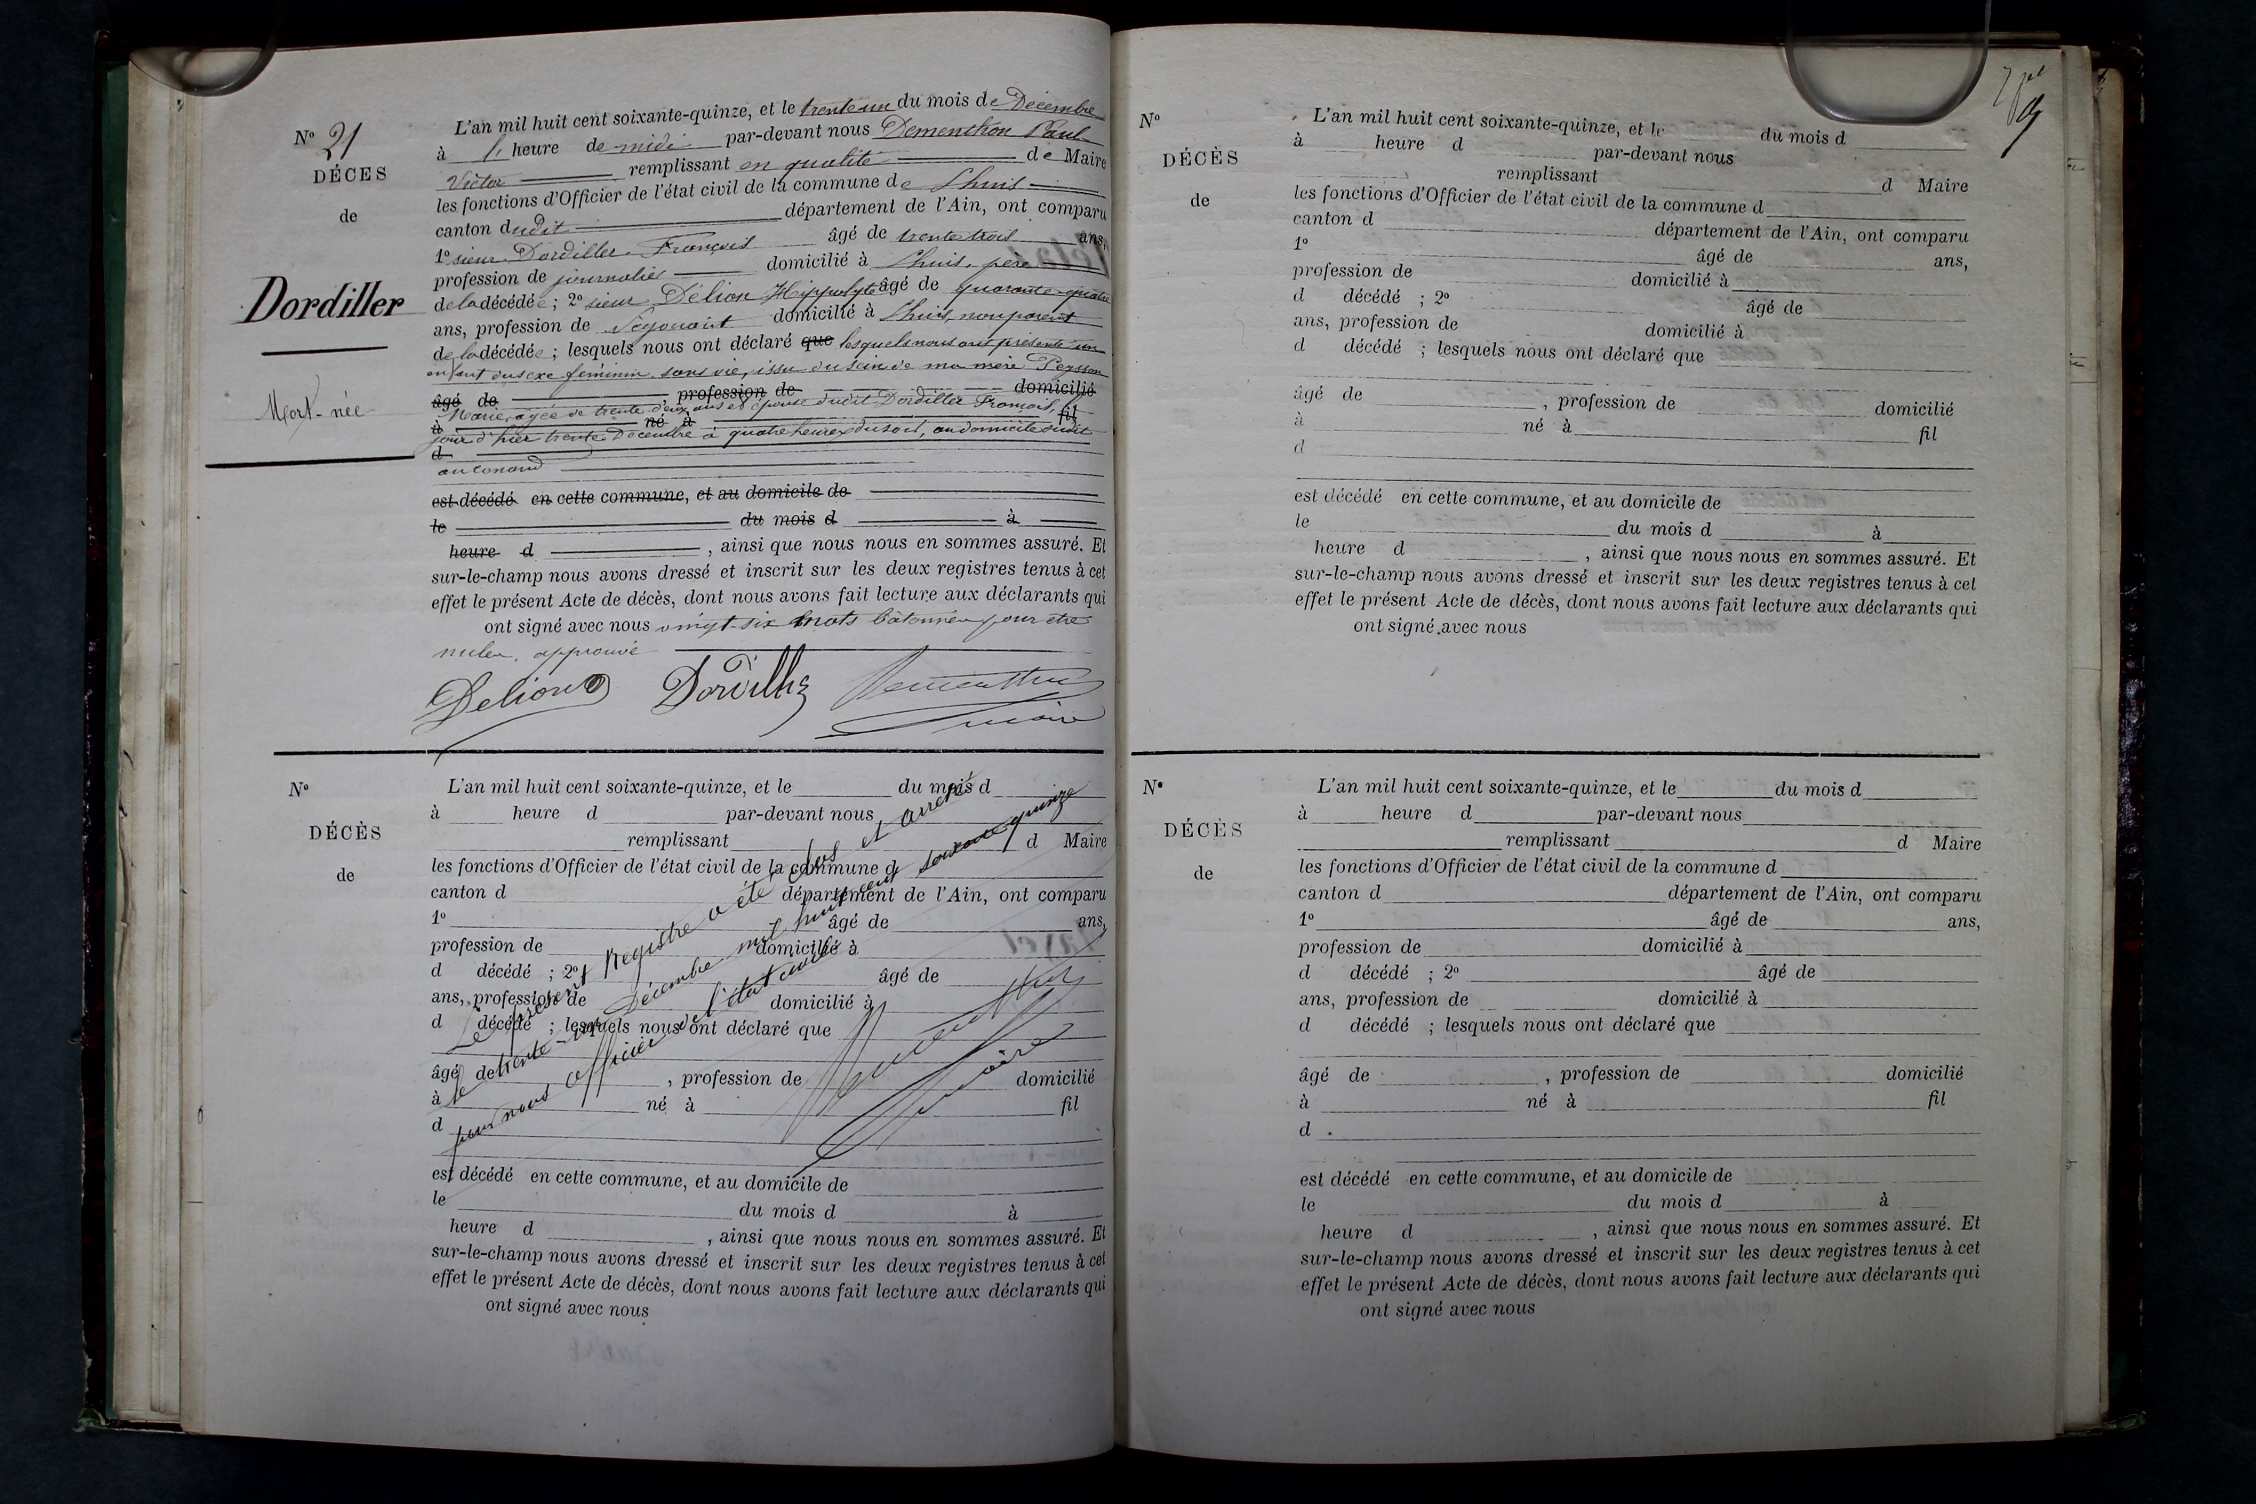 N° 21
DÉCES
de
Dordiller
Mort-née
L'an mil huit cent soixante-quinze, et le trente un du mois de Décembre
à heure de midi par-devant nous Dementhon Paul
Victor remplissant en qualité de Maire
les fonctions d'Officier de l'état civil de la commune de Lhuis
canton dudit département de l'Ain, ont comparu
1° sieur Dordiller François âgé de trente trois ans,
profession de journalier domicilié à Lhuis, père
de la décédée ; 2° sieur Délion Hippolyte âgé de quarante-quatre
ans, profession de domicilié à Lhuis, non parent
de la décédée ; lesquels nous ont déclaré que lesquels nous ont présenté un
enfant du sexe féminin, sans vie, issu du sein de sa mère Peysson
âgé de profession de domicilié
Marie, agée de trente deux ans et épouse dudit Dordiller François,
à né à fil
jour d'hier trente Décembre à quatre heures du soir, au domicile sudit
d
au
est décédé en cette commune, et au domicile de
le du mois d à
heure d , ainsi que nous nous en sommes assuré. Et
sur-le-champ nous avons dressé et inscrit sur les deux registres tenus à cet
effet le présent Acte de décès, dont nous avons fait lecture aux déclarants qui
ont signé avec nous vingt-six mots bâtonnés pour être
nuls, approuvé
Delion Dordiller Dementhon
maire
N°
DÉCÈS
de
L'an mil huit cent soixante-quinze, et le du mois d
à heure d par-devant nous
remplissant d Maire
les fonctions d'Officier de l'état civil de la commune d
canton d département de l'Ain, ont comparu
1° âgé de ans,
profession de domicilié à
d décédé ; 2° âgé de
ans, profession de domicilié à
d décédé ; lesquels nous ont déclaré que
âgé de , profession de domicilié
à né à fil
d
est décédé en cette commune, et au domicile de
le du mois d à
heure d , ainsi que nous nous en sommes assuré. Et
sur-le-champ nous avons dressé et inscrit sur les deux registres tenus à cet
effet le présent Acte de décès, dont nous avons fait lecture aux déclarants qui
ont signé avec nous
Le présent Registre a été clos et arrêté
le trente-un Décembre mil huit cent soixante quinze
par nous officier de l'état civil
Dementhon
maire
N°
DÉCÈS
de
L'an mil huit cent soixante-quinze, et le du mois d
à heure d par-devant nous
remplissant d Maire
les fonctions d'Officier de l'état civil de la commune d
canton d département de l'Ain, ont comparu
1° âgé de ans,
profession de domicilié à
d décédé ; 2° âgé de
ans, profession de domicilié à
d décédé ; lesquels nous ont déclaré que
âgé de , profession de domicilié
à né à fil
d
est décédé en cette commune, et au domicile de
le du mois d à
heure d , ainsi que nous nous en sommes assuré. Et
sur-le-champ nous avons dressé et inscrit sur les deux registres tenus à cet
effet le présent Acte de décès, dont nous avons fait lecture aux déclarants qui
ont signé avec nous
N°
DÉCÈS
de
L'an mil huit cent soixante-quinze, et le du mois d
à heure d par-devant nous
remplissant d Maire
les fonctions d'Officier de l'état civil de la commune d
canton d département de l'Ain, ont comparu
1° âgé de ans,
profession de domicilié à
d décédé ; 2° âgé de
ans, profession de domicilié à
d décédé ; lesquels nous ont déclaré que
âgé de , profession de domicilié
à né à fil
d
est décédé en cette commune, et au domicile de
le du mois d à
heure d , ainsi que nous nous en sommes assuré. Et
sur-le-champ nous avons dressé et inscrit sur les deux registres tenus à cet
effet le présent Acte de décès, dont nous avons fait lecture aux déclarants qui
ont signé avec nous